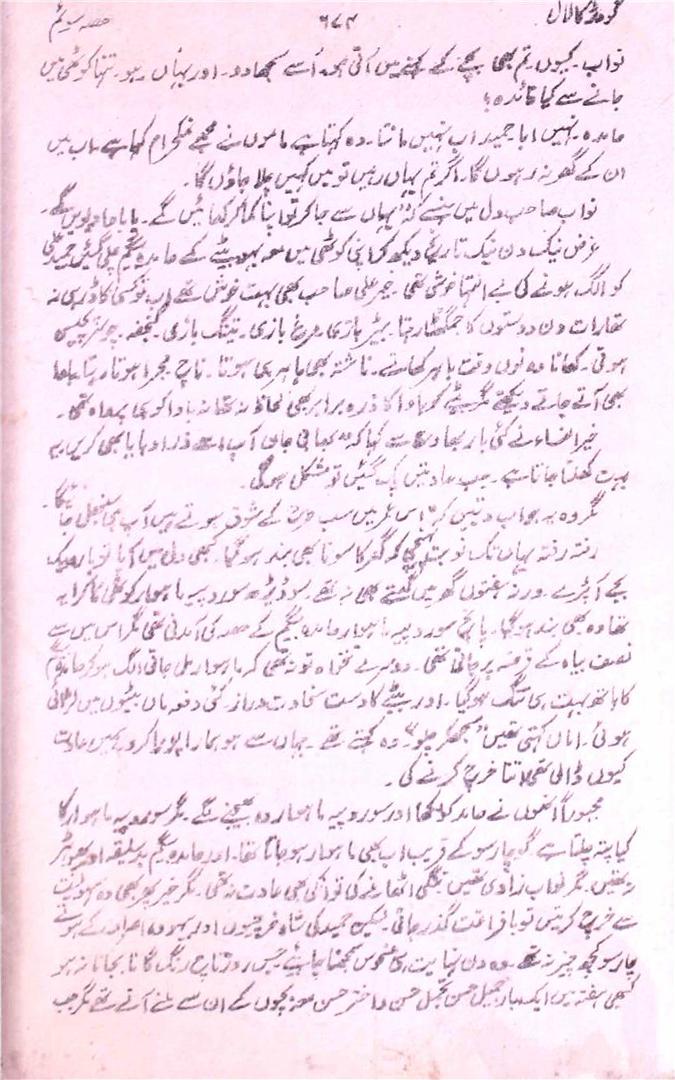 گودڑ کا لال ۶۷۴ حصہ سوئم
نواب۔ کیوں تم بھی بچے کے کہنے میں آتی ہو۔ اُسے سمجھا دو۔ اور یہاں رہو۔ تنہا کوٹھی میں
جانے سے کیا فائدہ؟
حامدہ۔ نہیں ابا۔ حمید اب نہیں مانتا۔ وہ کہتا ہے ماموں نے مجھے نمکحرام کہا ہے۔ اب میں
ان کے گھر نہ رہوں گا۔ اگر تم یہاں رہیں تو میں کہیں چلا جاؤں گا۔
نواب صاحب دل میں ہنسے کہ یہاں سے جا کر تو اپنا کما کر کھائیں گے۔
غرض نیک دن نیک تاریخ دیکھ کر اپنی کوٹھی میں معہ بہو بیٹے کے حامدہ بیگم چلی گئیں حمید علی
کو الگ ہونے کی بے انتہا خوشی تھی۔ خیر علی صاحب بھی بہت خوش تھے اب تو کسی کا ڈر ہی نہ
تھا رات دن دوستوں کا جمگھٹا رہتا۔ بٹیر بازی۔ مرغ بازی۔ پتنگ بازی۔ گنجفہ۔ چوسر پچیسی
ہوتی۔ کھانا دونوں وقت باہر کھاتے۔ ناشتہ بھی باہر ہی ہوتا۔ ناچ مجرا ہوتا رہتا باوا
بھی آتے جاتے دیکھتے مگر بیٹے کو باوا کا ذرہ برابر بھی لحاظ نہ تھا نہ باوا کو ہی پرواہ تھی۔
خیر النساء نے کئی بار بھاوج سے کہا کہ بھابی جان آپ اسے ذرا دبایا بھی کریں یہ
بہت کھلتا جاتا ہے۔ جب عادتیں پک گئیں تو مشکل ہوگی۔
مگر وہ یہ جواب دیتیں کہ اس عمر میں سب طرح کے شوق ہوتے ہیں آپ ہی سنبھل جائیگا۔
رفتہ رفتہ یہاں تک نوبت پہنچی کہ گھر کا سونا بھی بند ہو گیا۔ کبھی دل میں آیا تو بارہ ایک
بجے آ پڑے۔ ورنہ ہفتوں گھر میں گھستے بھی نہ تھے۔ سو ڈیڑھ سو روپیہ ماہوار کوٹھی کا کرایہ
تھا وہ بھی بند ہو گیا۔ پانچ سو روپیہ ماہوار حامدہ بیگم کے حصہ کی آمدنی تھی مگر اس میں سے
نصف بیاہ کے قرضہ پر جاتی تھی۔ دوسرے تنخواہ تو نہ تھی کہ ماہوار مل جاتی الگ ہو کر حامدہ بیگم
کا ہاتھ بہت ہی تنگ ہو گیا۔ اور بیٹے کا دست سخاوت دراز۔ کئی دفعہ ماں بیٹوں میں لڑائی
ہوئی۔ اماں کہتی تھیں سمجھ کر چلو۔ وہ کہتے تھے۔ جہاں سے ہو ہمارا پورا کرو ہمیں عادت
کیوں ڈالی تھی اتنا خرچ کرنے کی۔
مجبوراً انھوں نے حامد کو لکھا اور سو روپیہ ماہوار وہ بھیجنے لگے۔ مگر سو روپیہ ماہوار کا
کیا پتہ چلتا ہے گو چار سو کے قریب اب بھی ماہوار ہو جاتا تھا۔ اور حامدہ بیگم بد سلیقہ اور پھوہڑ
نہ تھیں۔ مگر نواب زادی تھیں تنگی اٹھانے کی تو انکی بھی عادت نہ تھی۔ مگر خیر پھر بھی وہ سہولیت
سے خرچ کرتیں تو با فراغت گذر جاتی۔ لیکن حمید کی شاہ خرچیوں اور بیہودہ اصراف کے ہوتے
چار سو کچھ چیز نہ تھے۔ وہ دن نہایت ہی منحوس سمجھنا چاہئے جس روز ناچ رنگ گانا بجانا نہ ہو
کبھی ہفتہ میں ایک بار جمیل حسن تجمل حسن و اختر حسن معہ بچوں کے ان سے ملنے آتے تھے مگر جب